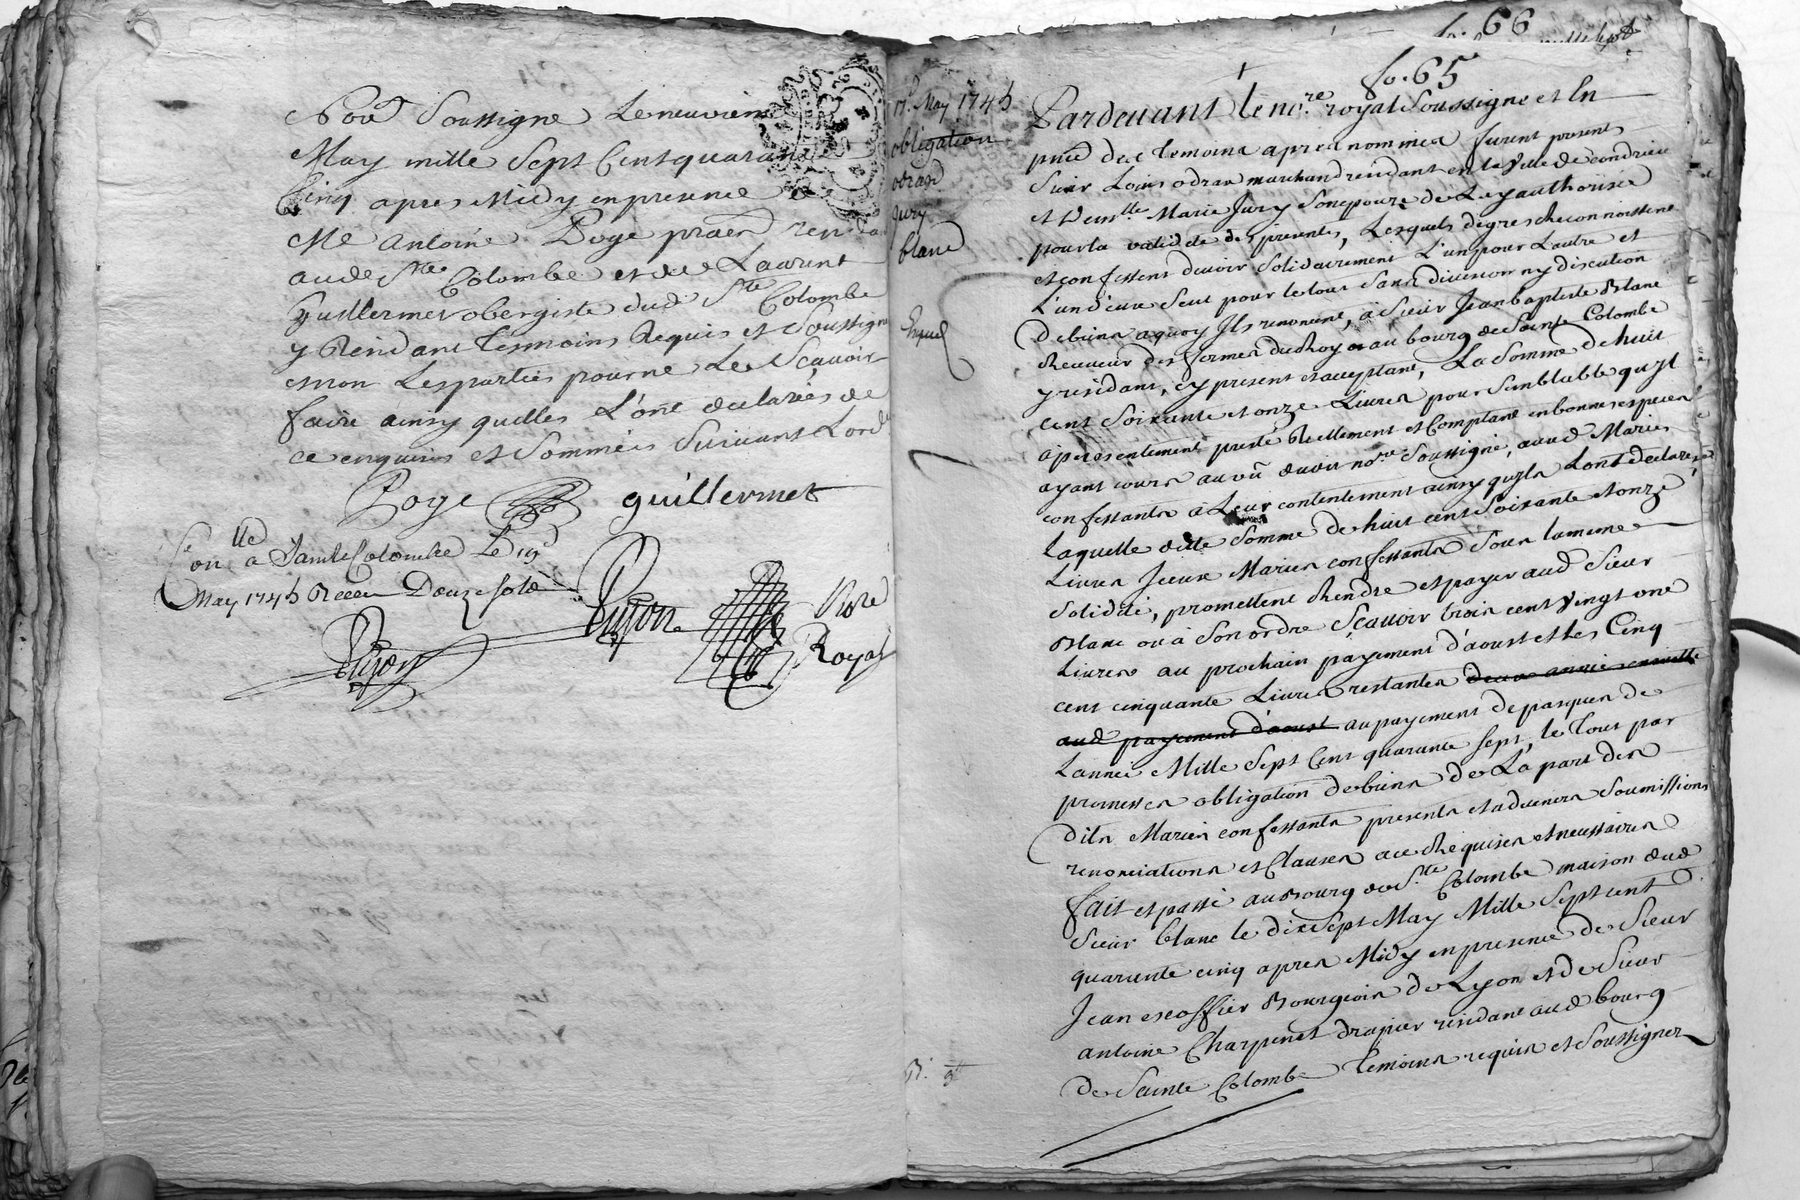 Soussigné Le neuvieme
May mille Sept Cent quarante
Cinq apres Midy en presence de
Me Antoine Doge
aud. Ste Colombe et de Laurent
Guillermet obergiste dud. Ste Colombe
y Residant Tesmoins Requis et Soussignes
et non Les parties pour ne Le Scavoir
faire ainsy quelles L'ont declarées de
ce enquises et Sommées Suivant Lord.
Doge guillermet
Con.lle a Sainte Colombe Le 19
May 1745 Receu Douze sols
Pujon
Pujon Nore
Royal
66
fo. 65
17 May 1745
obligation
odrad
Jury
blanc
Pardevant le nore. royal Soussigné et En
pnce des temoins apres nommes furent presents
Sieur Louis odrax marchand residant en la Ville de Condrieu
et Demlle Marie Jury Son epouze de Luy authorisée
pour la validité des presentes, Lesquels de gres reconnoissent
et confessent devoir Solidairement L'un pour L'autre et
L'un d'eux Seul pour le tout Sans division ny discution
de biens a quoy Ils renoncent, a Sieur Jean baptiste Blanc
Receveur des fermes du Roy au bourg de Sainte Colombe
y residant, cy present et acceptant, La Somme de huit
cent Soixante et onze Livres pour Semblable qu'Il
a presentement presté Reellement et Comptant en bonnes especes
ayant cours au vû du notre Soussigné, aud. Mariés
confessants a Leur contentement ainsy qu'ils L'ont declaré
Laquelle ditte Somme de huit cent Soixante et onze
Livres Iceux Mariés confessants Sous la meme
Solidité, promettent Rendre et payer aud. Sieur
Blanc ou à Son ordre Sçavoir trois cent vingt une
Livres au prochain payement d'aoust et les Cinq
cent cinquante Livres restantes deux année ensuitte
aud. payement d'aoust au payement de pasques de
L'année Mille Sept Cent quarante Sept, le Tout par
promesses obligation de biens de La part des
dits Mariés confessants presents et advenirs Soumissions
renonciations et Clauses a ce Requises et necessaires
fait et passé au Bourg de Ste Colombe maison dud.
Sieur blanc le dix Sept May Mille Sept cent
quarante cinq apres Midy en presence de Sieur
Jean escoffier Bourgeois de Lyon et de Sieur
antoine Charpenet drapier residant aud. bourg
de Sainte Colombe Temoins requis et Soussignez